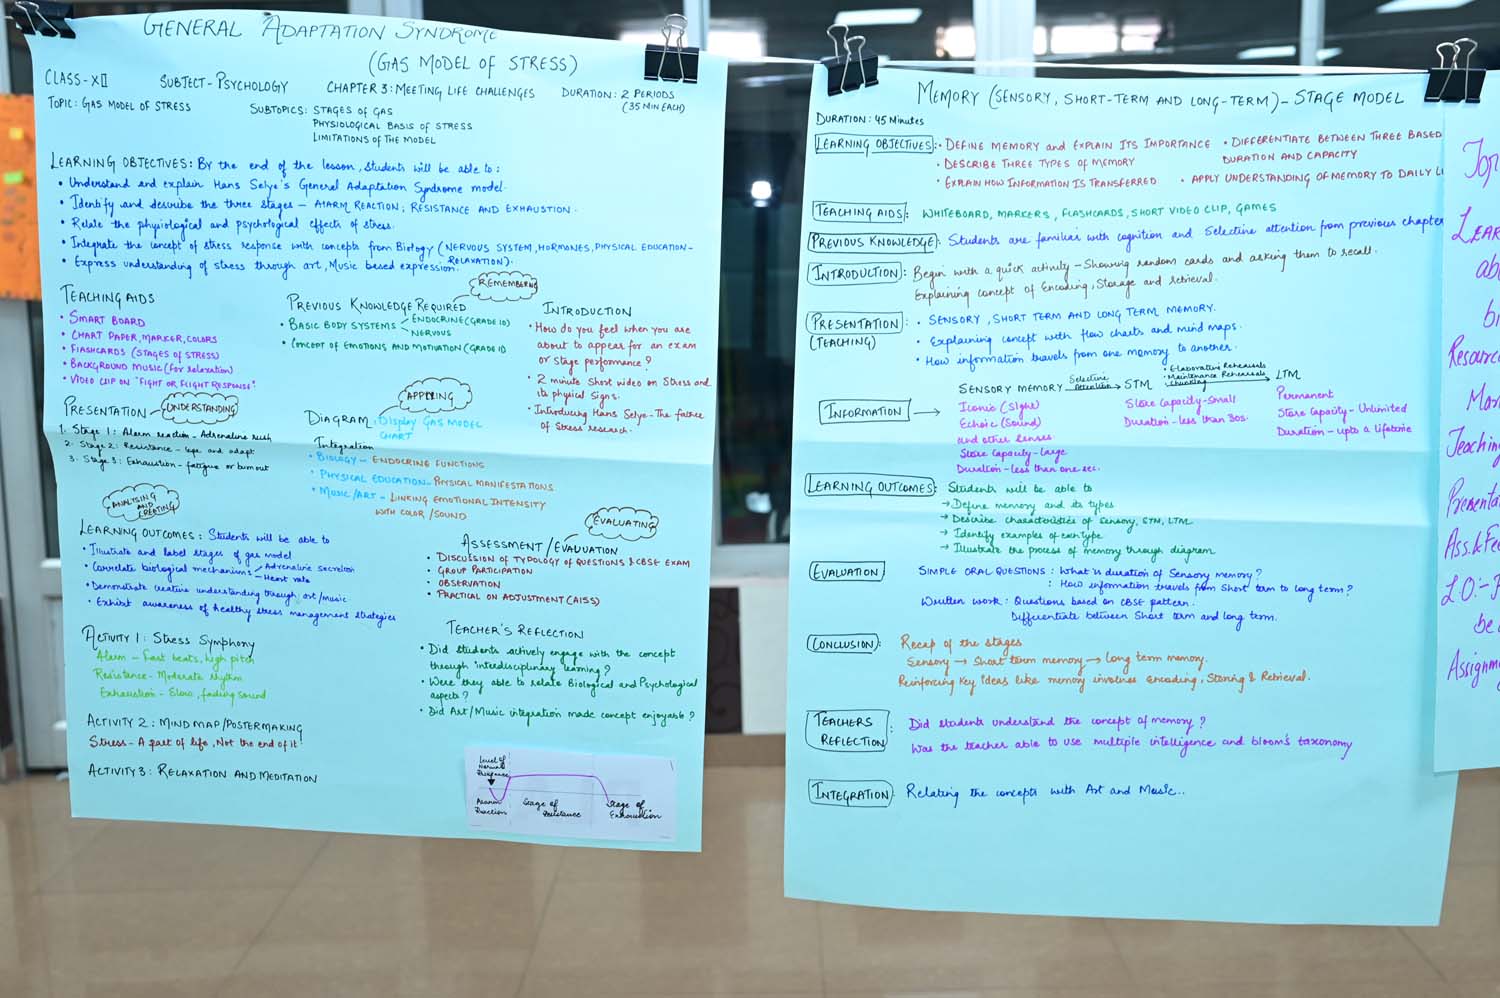 GENERAL ADAPTATION SYNDROME
(GAS MODEL OF STRESS)
CLASS-XII SUBJECT-PSYCHOLOGY CHAPTER 3: MEETING LIFE CHALLENGES DURATION: 2 PERIODS
(35 MIN EACH)
TOPIC: GAS MODEL OF STRESS SUBTOPICS: STAGES OF GAS
PHYSIOLOGICAL BASIS OF STRESS
LIMITATIONS OF THE MODEL
LEARNING OBJECTIVES: By the end of the lesson, students will be able to:
• Understand and explain Hans Selye's General Adaptation Syndrome model.
• Identify and describe the three stages - ALARM REACTION, RESISTANCE AND EXHAUSTION.
• Relate the physiological and psychological effects of stress.
• Integrate the concept of stress response with concepts from Biology (NERVOUS SYSTEM, HORMONES, PHYSICAL EDUCATION-
RELAXATION).
• Express understanding of stress through art, Music based expression.
TEACHING AIDS
• SMART BOARD
• CHART PAPER, MARKER, COLORS
• FLASHCARDS (STAGES OF STRESS)
• BACKGROUND MUSIC (For relaxation)
• VIDEO CLIP ON "FIGHT OR FLIGHT RESPONSE".
REMEMBERING
PREVIOUS KNOWLEDGE REQUIRED
• BASIC BODY SYSTEMS ENDOCRINE (GRADE 10)
NERVOUS
• CONCEPT OF EMOTIONS AND MOTIVATION (GRADE 11)
INTRODUCTION
• How do you feel when you are
about to appear for an exam
or stage performance?
• 2 minute short video on Stress and
its physical signs.
• Introducing Hans Selye - The father
of Stress research.
PRESENTATION UNDERSTANDING
1. Stage 1: Alarm reaction - Adrenaline rush
2. Stage 2: Resistance - cope and adapt
3. Stage 3: Exhaustion - fatigue or burnout
APPLYING
DIAGRAM: Display GAS MODEL
CHART
Integration
• BIOLOGY - ENDOCRINE FUNCTIONS
• PHYSICAL EDUCATION - PHYSICAL MANIFESTATIONS
• MUSIC/ART - LINKING EMOTIONAL INTENSITY
WITH COLOR/SOUND
ANALYSING
AND
CREATING
LEARNING OUTCOMES: Students will be able to
• Illustrate and label stages of gas model
• Correlate biological mechanisms Adrenaline secretion
Heart rate
• Demonstrate creative understanding through art/music
• Exhibit awareness of healthy stress management strategies
EVALUATING
ASSESSMENT/EVALUATION
• DISCUSSION OF TYPOLOGY OF QUESTIONS & CBSE EXAM
• GROUP PARTICIPATION
• OBSERVATION
• PRACTICAL ON ADJUSTMENT (AISS)
ACTIVITY 1: Stress Symphony
Alarm - Fast beats, high pitch
Resistance - Moderate rhythm
Exhaustion - Slow, fading sound
ACTIVITY 2: MIND MAP/POSTERMAKING
Stress - A part of life, Not the end of it!
ACTIVITY 3: RELAXATION AND MEDITATION
TEACHER'S REFLECTION
• Did students actively engage with the concept
through interdisciplinary learning?
• Were they able to relate Biological and Psychological
aspects?
• Did Art/Music integration made concept enjoyable?
Level of
Normal
Alarm
Reaction
Stage of
Resistance
Stage of
Exhaustion
MEMORY (SENSORY, SHORT-TERM AND LONG-TERM) - STAGE MODEL
DURATION: 45 Minutes
LEARNING OBJECTIVES: • DEFINE MEMORY and EXPLAIN ITS IMPORTANCE • DIFFERENTIATE BETWEEN THREE BASED
• DESCRIBE THREE TYPES OF MEMORY DURATION AND CAPACITY
• EXPLAIN HOW INFORMATION IS TRANSFERRED • APPLY UNDERSTANDING OF MEMORY TO DAILY LI
TEACHING AIDS: WHITEBOARD, MARKERS, FLASHCARDS, SHORT VIDEO CLIP, GAMES
PREVIOUS KNOWLEDGE: Students are familiar with cognition and Selective attention from previous chapter
INTRODUCTION: Begin with a quick activity - Showing random cards and asking them to recall.
Explaining concept of Encoding, Storage and retrieval.
PRESENTATION: • SENSORY, SHORT TERM AND LONG TERM MEMORY.
(TEACHING) • Explaining concept with flow charts and mind maps.
• How information travels from one memory to another.
INFORMATION → SENSORY MEMORY Selective Attention → STM • Elaborative Rehearsals • Maintenance Rehearsals • Chunking → LTM
Iconic (Sight) Store Capacity-Small Permanent
Echoic (Sound) Duration - less than 30s. Store Capacity - Unlimited
and other senses Duration - upto a lifetime
Store Capacity - large
Duration - less than one sec.
LEARNING OUTCOMES: Students will be able to
→ Define memory and its types
→ Describe characteristics of Sensory, STM, LTM
→ Identify examples of each type
→ Illustrate the process of memory through diagram
EVALUATION SIMPLE ORAL QUESTIONS: What is duration of Sensory memory?
: How information travels from Short term to long term?
Written work: Questions based on CBSE pattern.
Differentiate between Short term and long term.
CONCLUSION: Recap of the stages
Sensory → Short term memory → Long term memory.
Reinforcing Key Ideas like memory involves Encoding, Storing & Retrieval.
TEACHERS REFLECTION: Did students understand the concept of memory?
Was the teacher able to use multiple intelligence and bloom's taxonomy
INTEGRATION: Relating the concepts with Art and Music..
Top
LEAR
ab
Resource
Teaching
Presenta
Ass. & Fee
L.O:-
be
Assignm